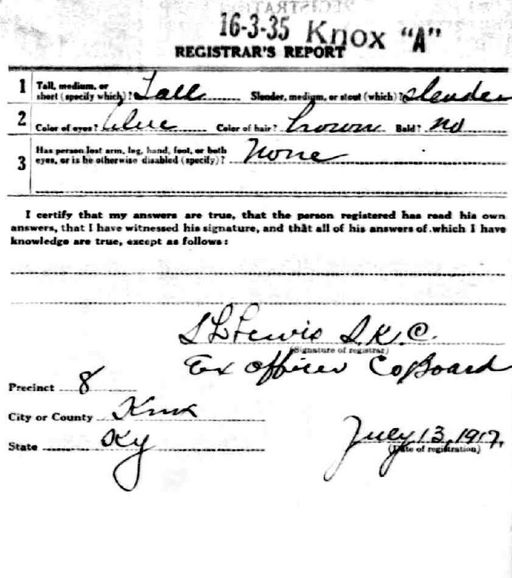 16-3-35 Knox "A"
REGISTRAR'S REPORT
1 Tall, medium, or short (specify which)? Tall Slender, medium, or stout (which)? slender
2 Color of eyes? blue Color of hair? brown Bald? no
3 Has person lost arm, leg, hand, foot, or both eyes, or is he otherwise disabled (specify)? none
I certify that my answers are true, that the person registered has read his own
answers, that I have witnessed his signature, and that all of his answers of which I have
knowledge are true, except as follows:
S L Lewis S.K.C.
(Signature of registrar)
Ex officer Co Board
Precinct 8
City or County Knox
State Ky
July 13, 1917.
(Date of registration)